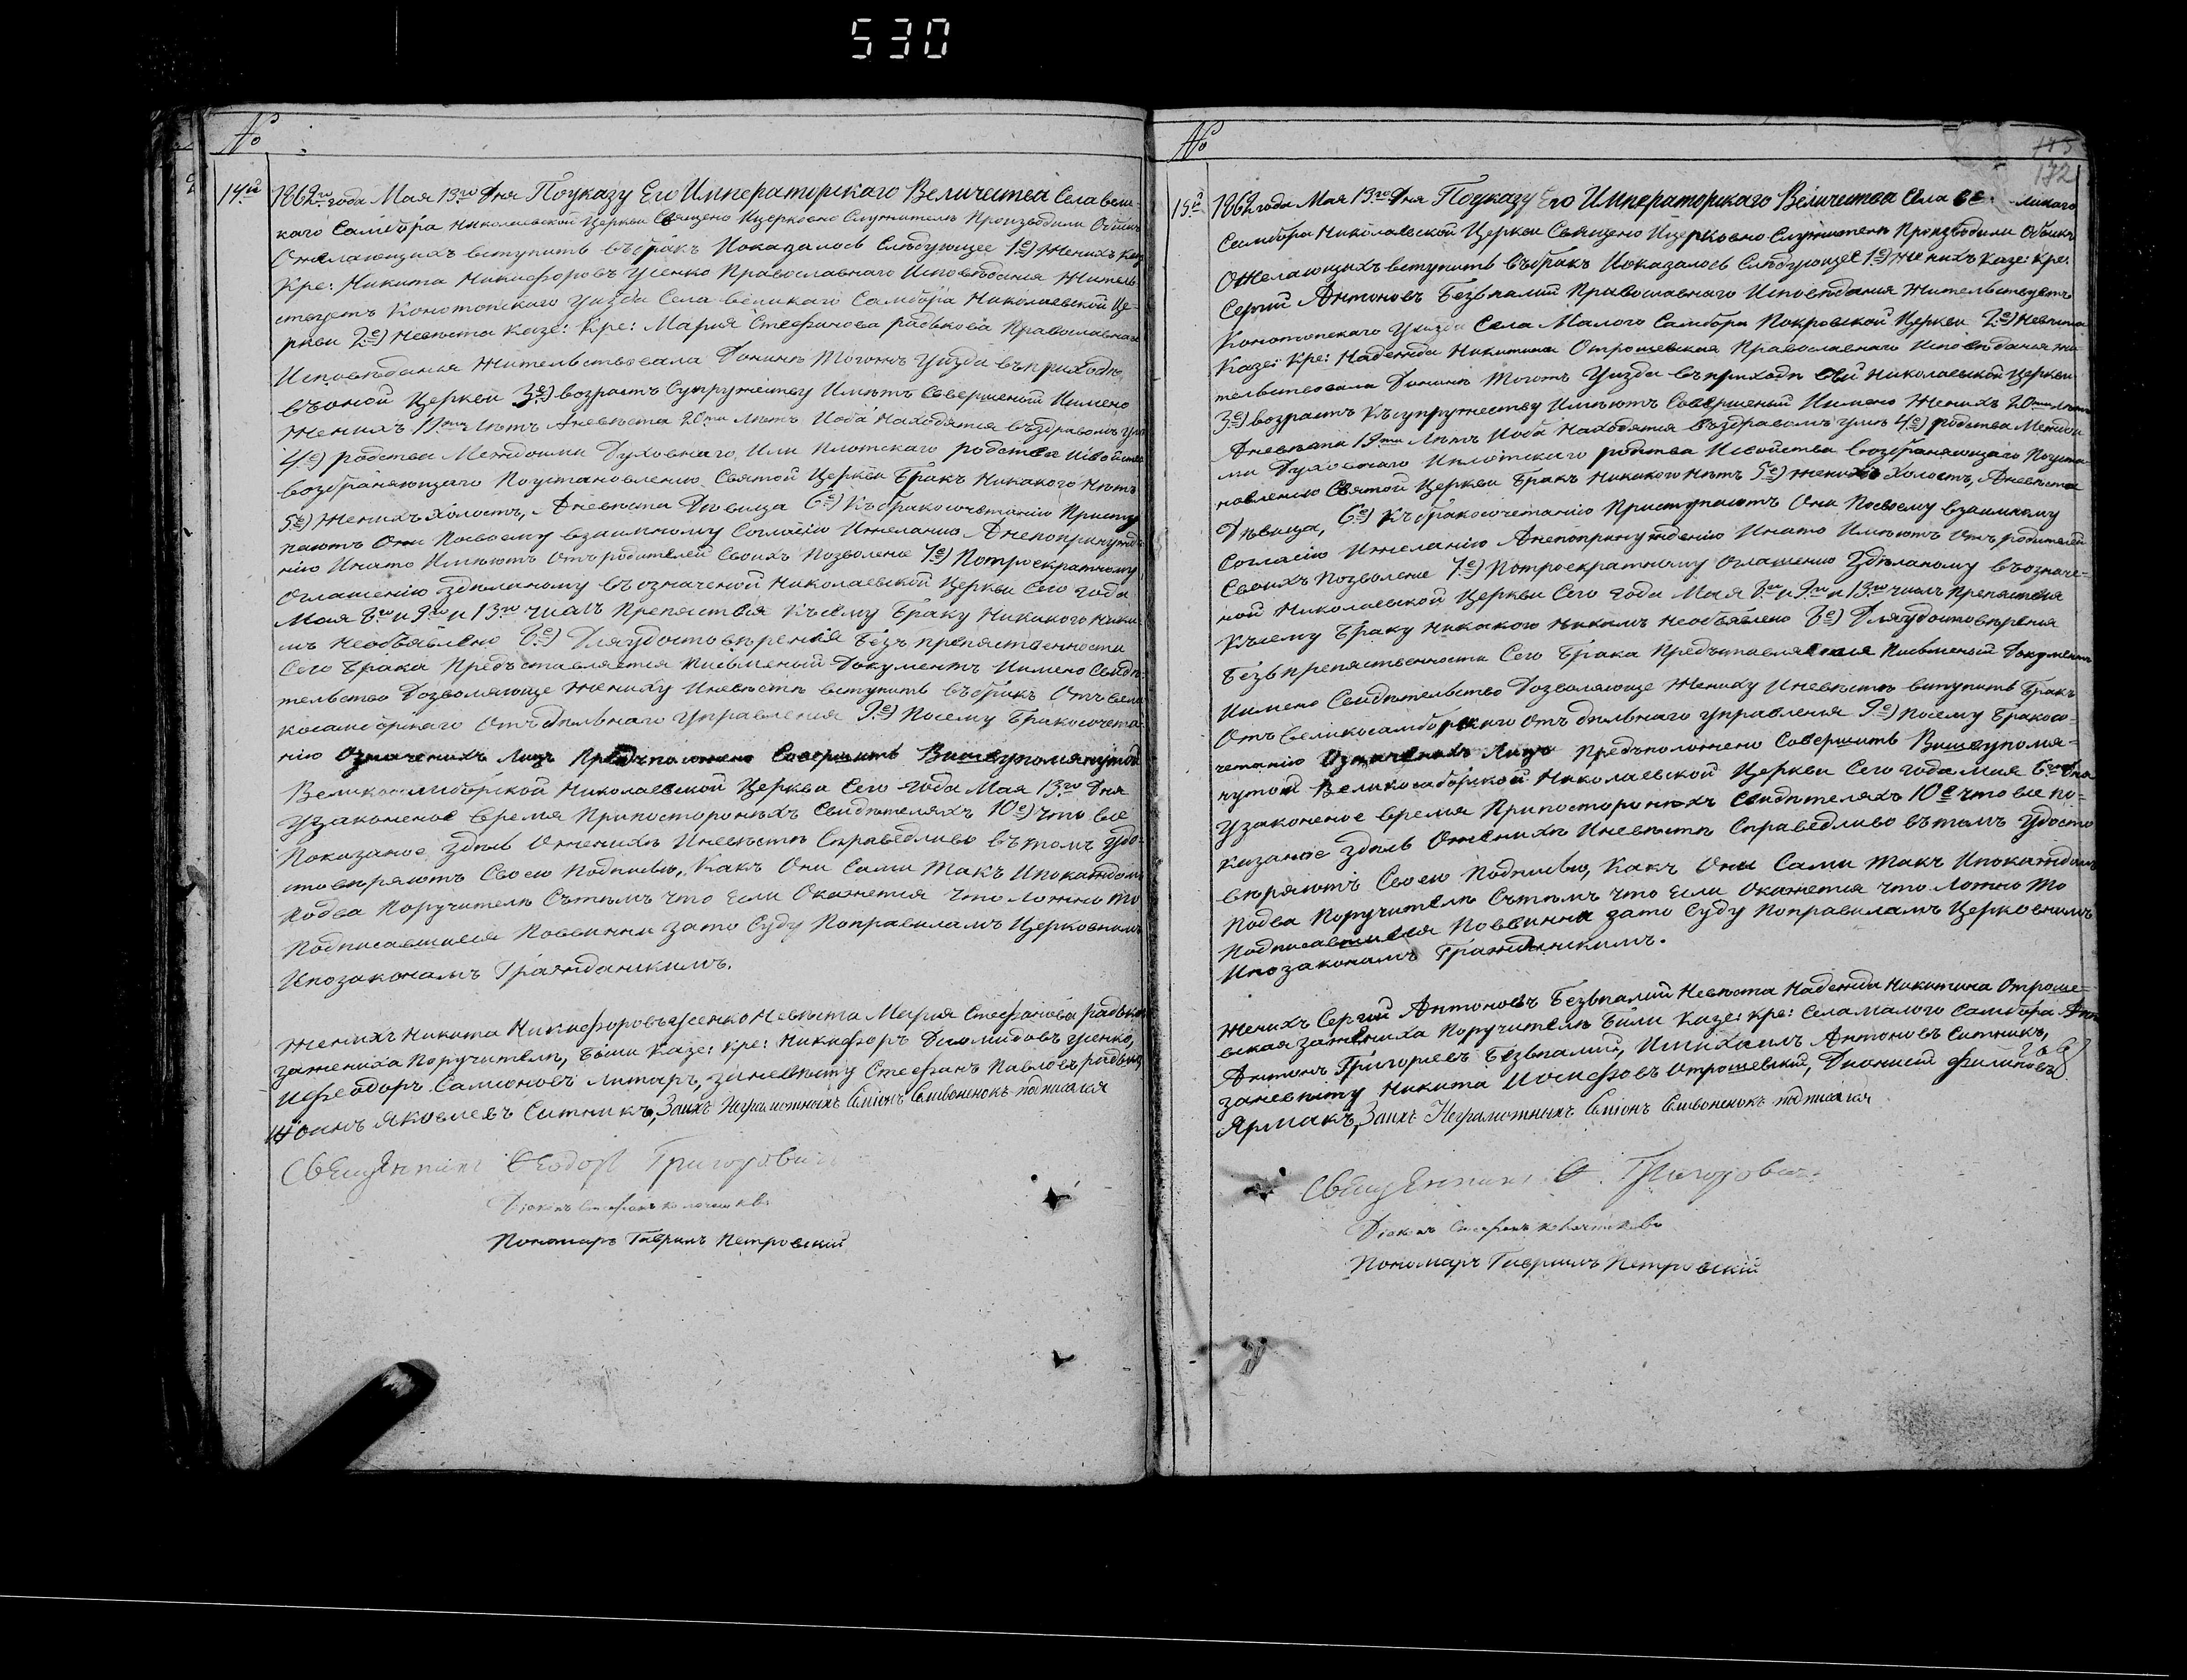 530
№
14й
1862го года Мая 13го дня По указу Его Императорскаго Величества Села вели-
каго Самбора Николаевской Церкви Священо Ицерковно Служители Производили Обыскъ
Ожелающихъ вступить въбракъ Показалось Слѣдующее 1е) Женихъ Казе:
Кре: Никита Никифоровъ Усенко Православнаго Исповѣданія Житель-
ствуетъ Конотопскаго уизда Села великаго Самбора Николаевской Це-
ркви 2е) Невѣста Казе: Кре: Мария Стефанова радькова Православнаго
Исповѣданія Жительствовала Донинѣ Тогожъ уизда въприходѣ
въоной Церкви 3е) возрастъ Супружеству Имѣютъ Совершеный Иимено
Женихъ лѣтъ Аневѣста 20ти лѣтъ Иоба Находятся въздравомъ умѣ
4е) родства Междоими Духовнаго, Или плотскаго родства Исвойства
возбраняющаго Поустановленію Святой Церкви бракъ Никакого Нѣтъ
5е) Женихъ холостъ, Аневѣста Дѣвица 6е) Къбракосочетанію Присту-
паютъ Они Посвоему взаимному Согласію Ижеланію Анепопринужде-
нію Инато Имѣютъ Отъродителей Своихъ Позволеніе 7е) Потроекратному
Оглашенію здѣланому въозначеной Николаевской Церкви Сего года
Мая 8го и 9го и 13го числъ Препяствія Късему браку Никакого Ники-
мъ Необъявлено 8е) Дляудостовѣренія безъ препяственности
Сего брака Предъставляется Писменый Документъ Иимено Свидѣ-
тельство Дозволяюще Жениху Иневѣстѣ вступить въбракъ Отъвели-
косамборскаго Отъдѣльнаго управленія 9е) Посему бракосочета-
нію Означенихъ Лицъ Предъположено Совершить Вишеупомянутой
Великосамборской Николаевской Церкви Сего года Мая 13го Дня
Узаконеное время Припостороныхъ Свидѣтеляхъ 10е) Что все
Показаное здѣсь Оженихѣ Иневѣстѣ Справедливо вътомъ удо-
стовѣряютъ Своею Подписью, Какъ Они Сами такъ Ипокаждомъ
Подва Поручителѣ Сътѣмъ что Если Окажется Что Ложно то
Подписавшиеся Повинни зато Суду Поправиламъ Церковнимъ
Ипозаконамъ Гражданскимъ.
Женихъ Никита Никифоровъ Усенко Невѣста Мария Стефанова радькова
зажениха Поручители, были Казе: Кре: Никифоръ Диомидовъ Усенко,
Ифеодоръ Самсоновъ Литаръ, заневѣсту Стефанъ Павловъ радько,
Иоанъ Яковлевъ Ситникъ, Заихъ Неграмотныхъ Симіонъ Сливоненокъ подписался
Священникъ Феодоръ Григорович
Діаконъ Стефанъ
Пономарь Гавриилъ Петровский
№
175
172
15й
1862 года Мая 13го дня Поуказу Его Императорскаго Величества Села ве ликаго
Самбора Николаевской Церкви Священо Ицерковно Служители Производили Обыскъ
Ожелающихъ вступить въбракъ Показалось Слѣдующее 1е) Женихъ Казе: Кре:
Сергий Антоновъ Безпалий Православнаго Исповѣданія Жительствуетъ
Конотопскаго Уизда Села Малого Самбора Покровской Церкви 2е) Невѣста
Казе: Кре: Надежда Никитина Отрошевская Православнаго Исповѣданія жи-
тельствовала Донинѣ Тогожъ Уизда въприходѣ Николаевской Церкви
3е) возрастъ Късупружеству Имѣютъ Совершеный Иимено Женихъ 20ти лѣтъ
Аневѣста 19ти лѣтъ Иоба Находятся въздравомъ умѣ 4е) родства Междои-
ми Духовнаго Иплотскаго родства Исвойства возбраняющаго Поуста-
новленію Святой Церкви бракъ Никакого Нѣтъ 5е) Женихъ Холостъ, Аневѣста
Дѣвица, 6е) Къбракосочетанію Приступаютъ Они Посвоему взаимному
Согласію Ижеланію Анепопринужденію Инато Имѣютъ Отъ родителей
Своихъ Позволеніе 7е) Потроекратному Оглашенію здѣланому въозначе-
ной Николаевской Церкви Сего года Мая 8го и 9го и 13го числъ Препяствія
Късему браку Никакого Никимъ Необъявлено 8е) Дляудостовѣренія
безъпрепяственности Сего брака Предъставляется Писменый Документъ
Иимено Свидѣтельство Дозволяюще Жениху Иневѣстѣ вступить бракъ
Отъ великосамборскаго Отъдѣльнаго управленія 9е) Посему бракосо-
четанію Означенихъ Лицъ Предъположено Совершить Вишеупомя-
нутой Великосамборской Николаевской Церкви Сего года мая Дня
Узаконеное время Припостороныхъ Свидѣтеляхъ 10е Что все по-
казаное здѣсь Оженихѣ Иневѣстѣ Справедливо вътомъ Удосто-
вѣряютъ Своею Подписью, Какъ Они Сами такъ Ипокаждомъ
Подва Поручителѣ Сътѣмъ что Если Окажется что Ложно то
Подписавшиеся Повинни зато Суду Поправиламъ Церковнимъ
Ипозаконамъ Гражданскимъ.
Женихъ Сергий Антоновъ Безпалий Невѣста Надежда Никитина Отроше-
вская зажениха Поручители били Казе: Кре: Села малого Самбора
Антонъ Григориевъ Безпалий, Имихаилъ Антоновъ Ситникъ,
заневѣсту Никита Иосифовъ Отрошевский, Дионисий филиповъ
Ярмакъ, Заихъ Неграмотныхъ Симіонъ Сливоненокъ подписался
Священникъ Ѳ. Григорович
Діаконъ Стефанъ
Пономарь Гавриилъ Петровский